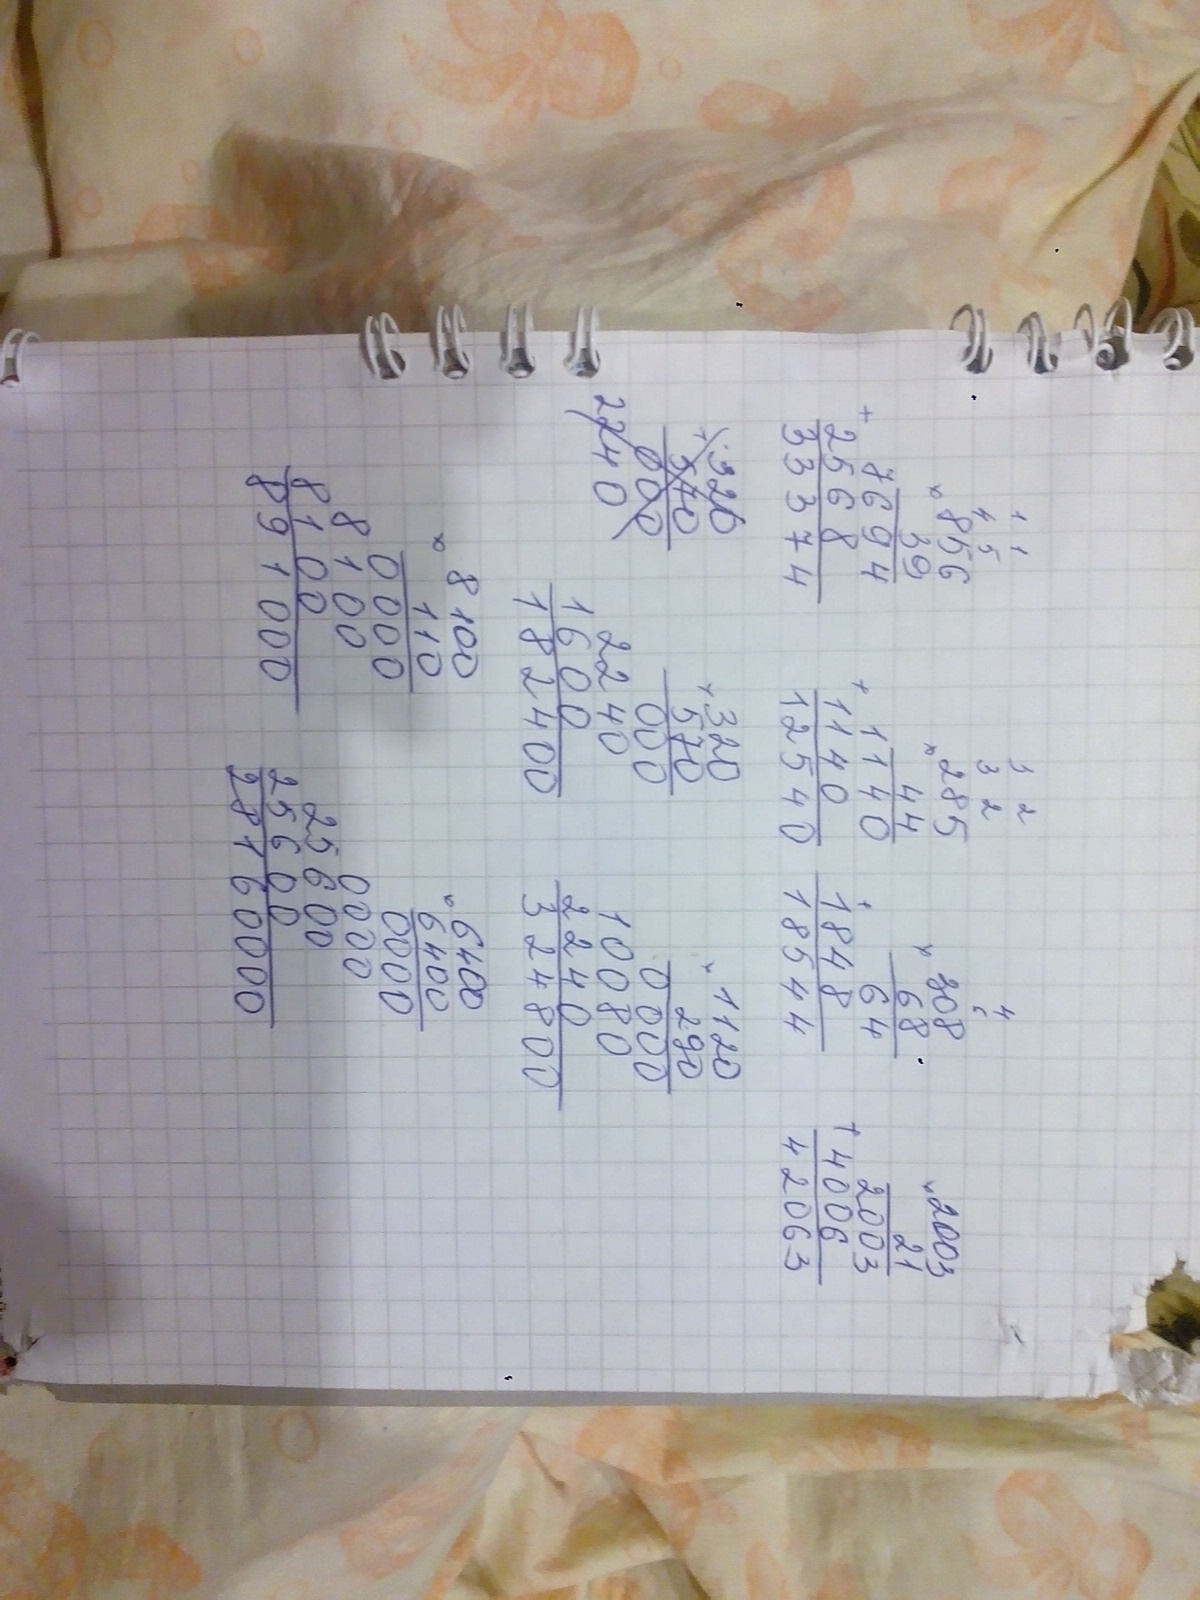 1 1
4 5
× 856
39
7694
+ 2568
33374
3 2
3 2
× 285
44
1140
+ 1140
12540
4
× 308
68
64
+ 1848
18544
× 2003
21
2003
+ 4006
42063
× 320
570
000
2240
× 320
570
000
2240
1600
182400
× 1120
290
0000
10080
2240
324800
× 8100
110
0000
8100
8100
891000
× 6400
6400
0000
0000
25600
25600
28160000